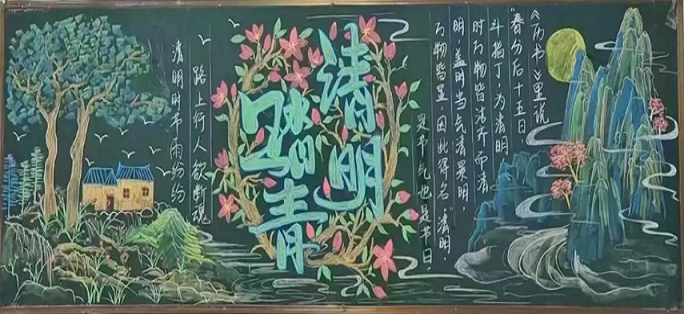 《历书》里说
“春分后十五日
斗指丁，为清明
时万物皆洁齐而清
明，盖时当气清景明，
万物皆显，因此得名“清明，
是节气也是节日。
清明
踏青
路上行人欲断魂
清明时节雨纷纷